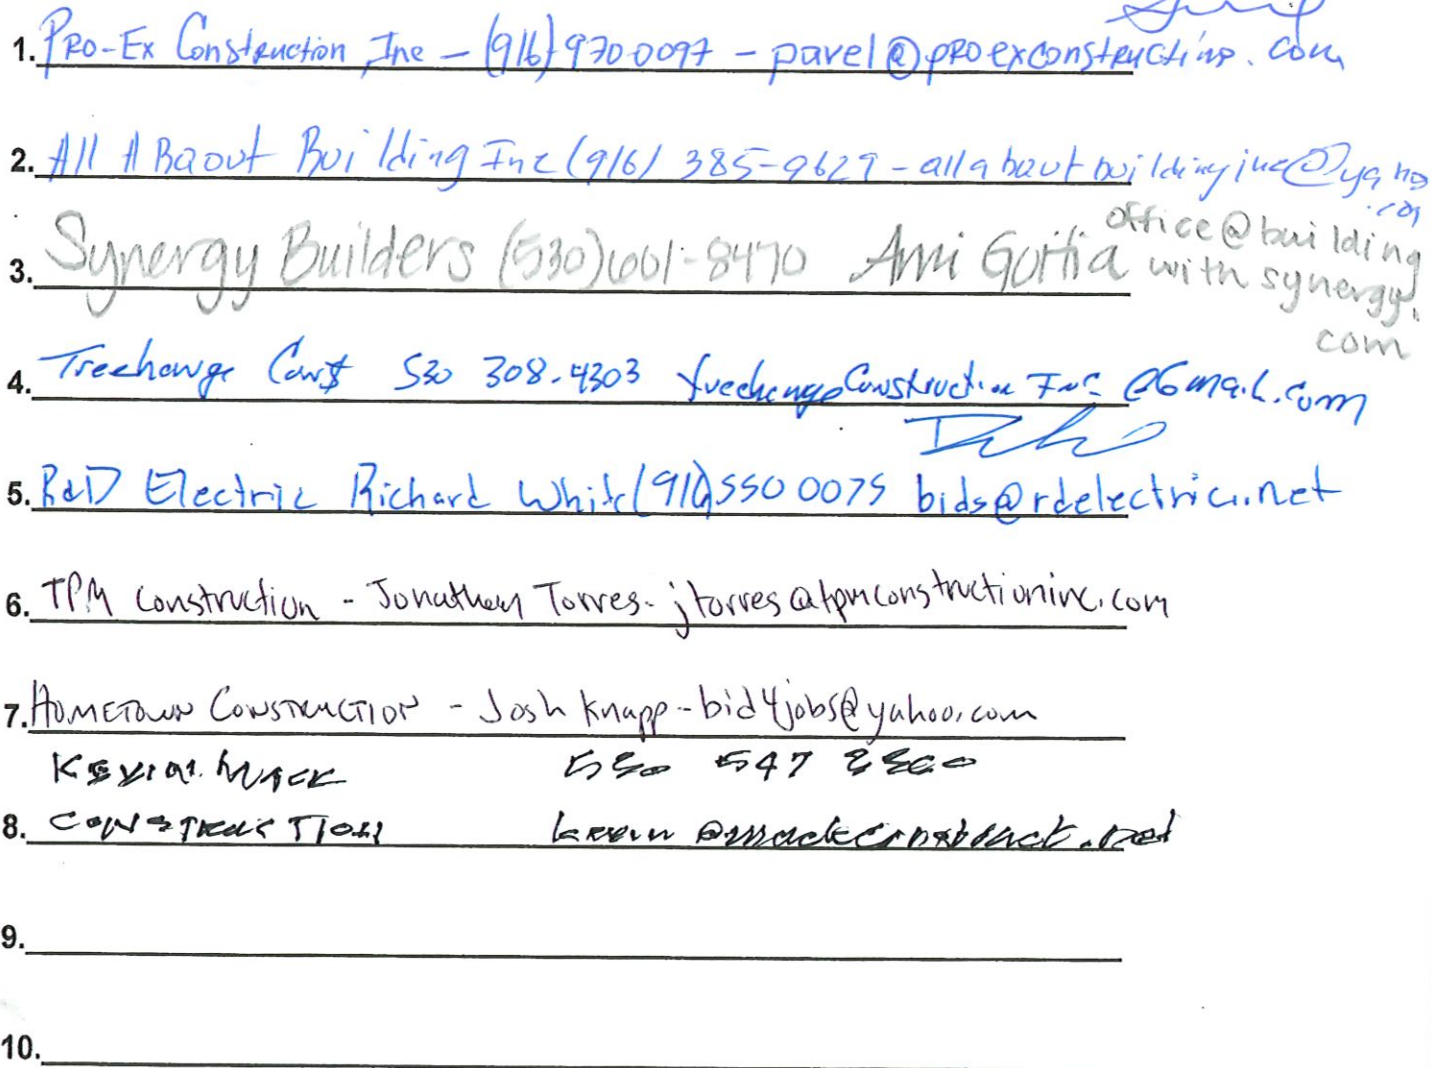 1. Pro-Ex Construction, Inc - (916) 970-0097 - pavel@proexconstructing.com
2. All ABaout Building Inc (916) 385-9629 - allabautbuildinginc@yahoo
.com
3. Synergy Builders (530) 661-8470 Ami Goitia office@building
with synergy.
com
4. Treehange Const 530 308-4303 treechangeConstruction Inc @Gmail.com
5. R&D Electric Richard White (916) 550 0075 bids@rdelectric.net
6. TPM Construction - Jonathan Torres - jtorres@tpmconstructioninc.com
7. Hometown Construction - Josh Knapp - bid4jobs@yahoo.com
Kevin Mack 530 547
8. Construction kevin @mackconstruct.net
9.
10.